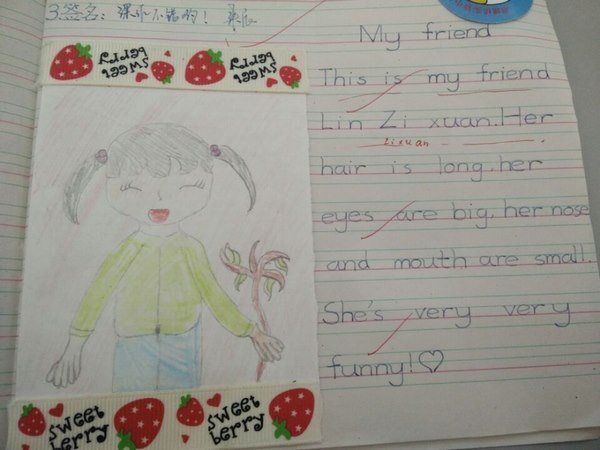 3.签名：课外不错的！
My friend
This is my friend
Lin Zi xuan. Her
zixuan
hair is long, her
eyes are big, her nose
and mouth are small.
She's very very
funny!♡
sweet berry
sweet berry
sweet berry
sweet berry